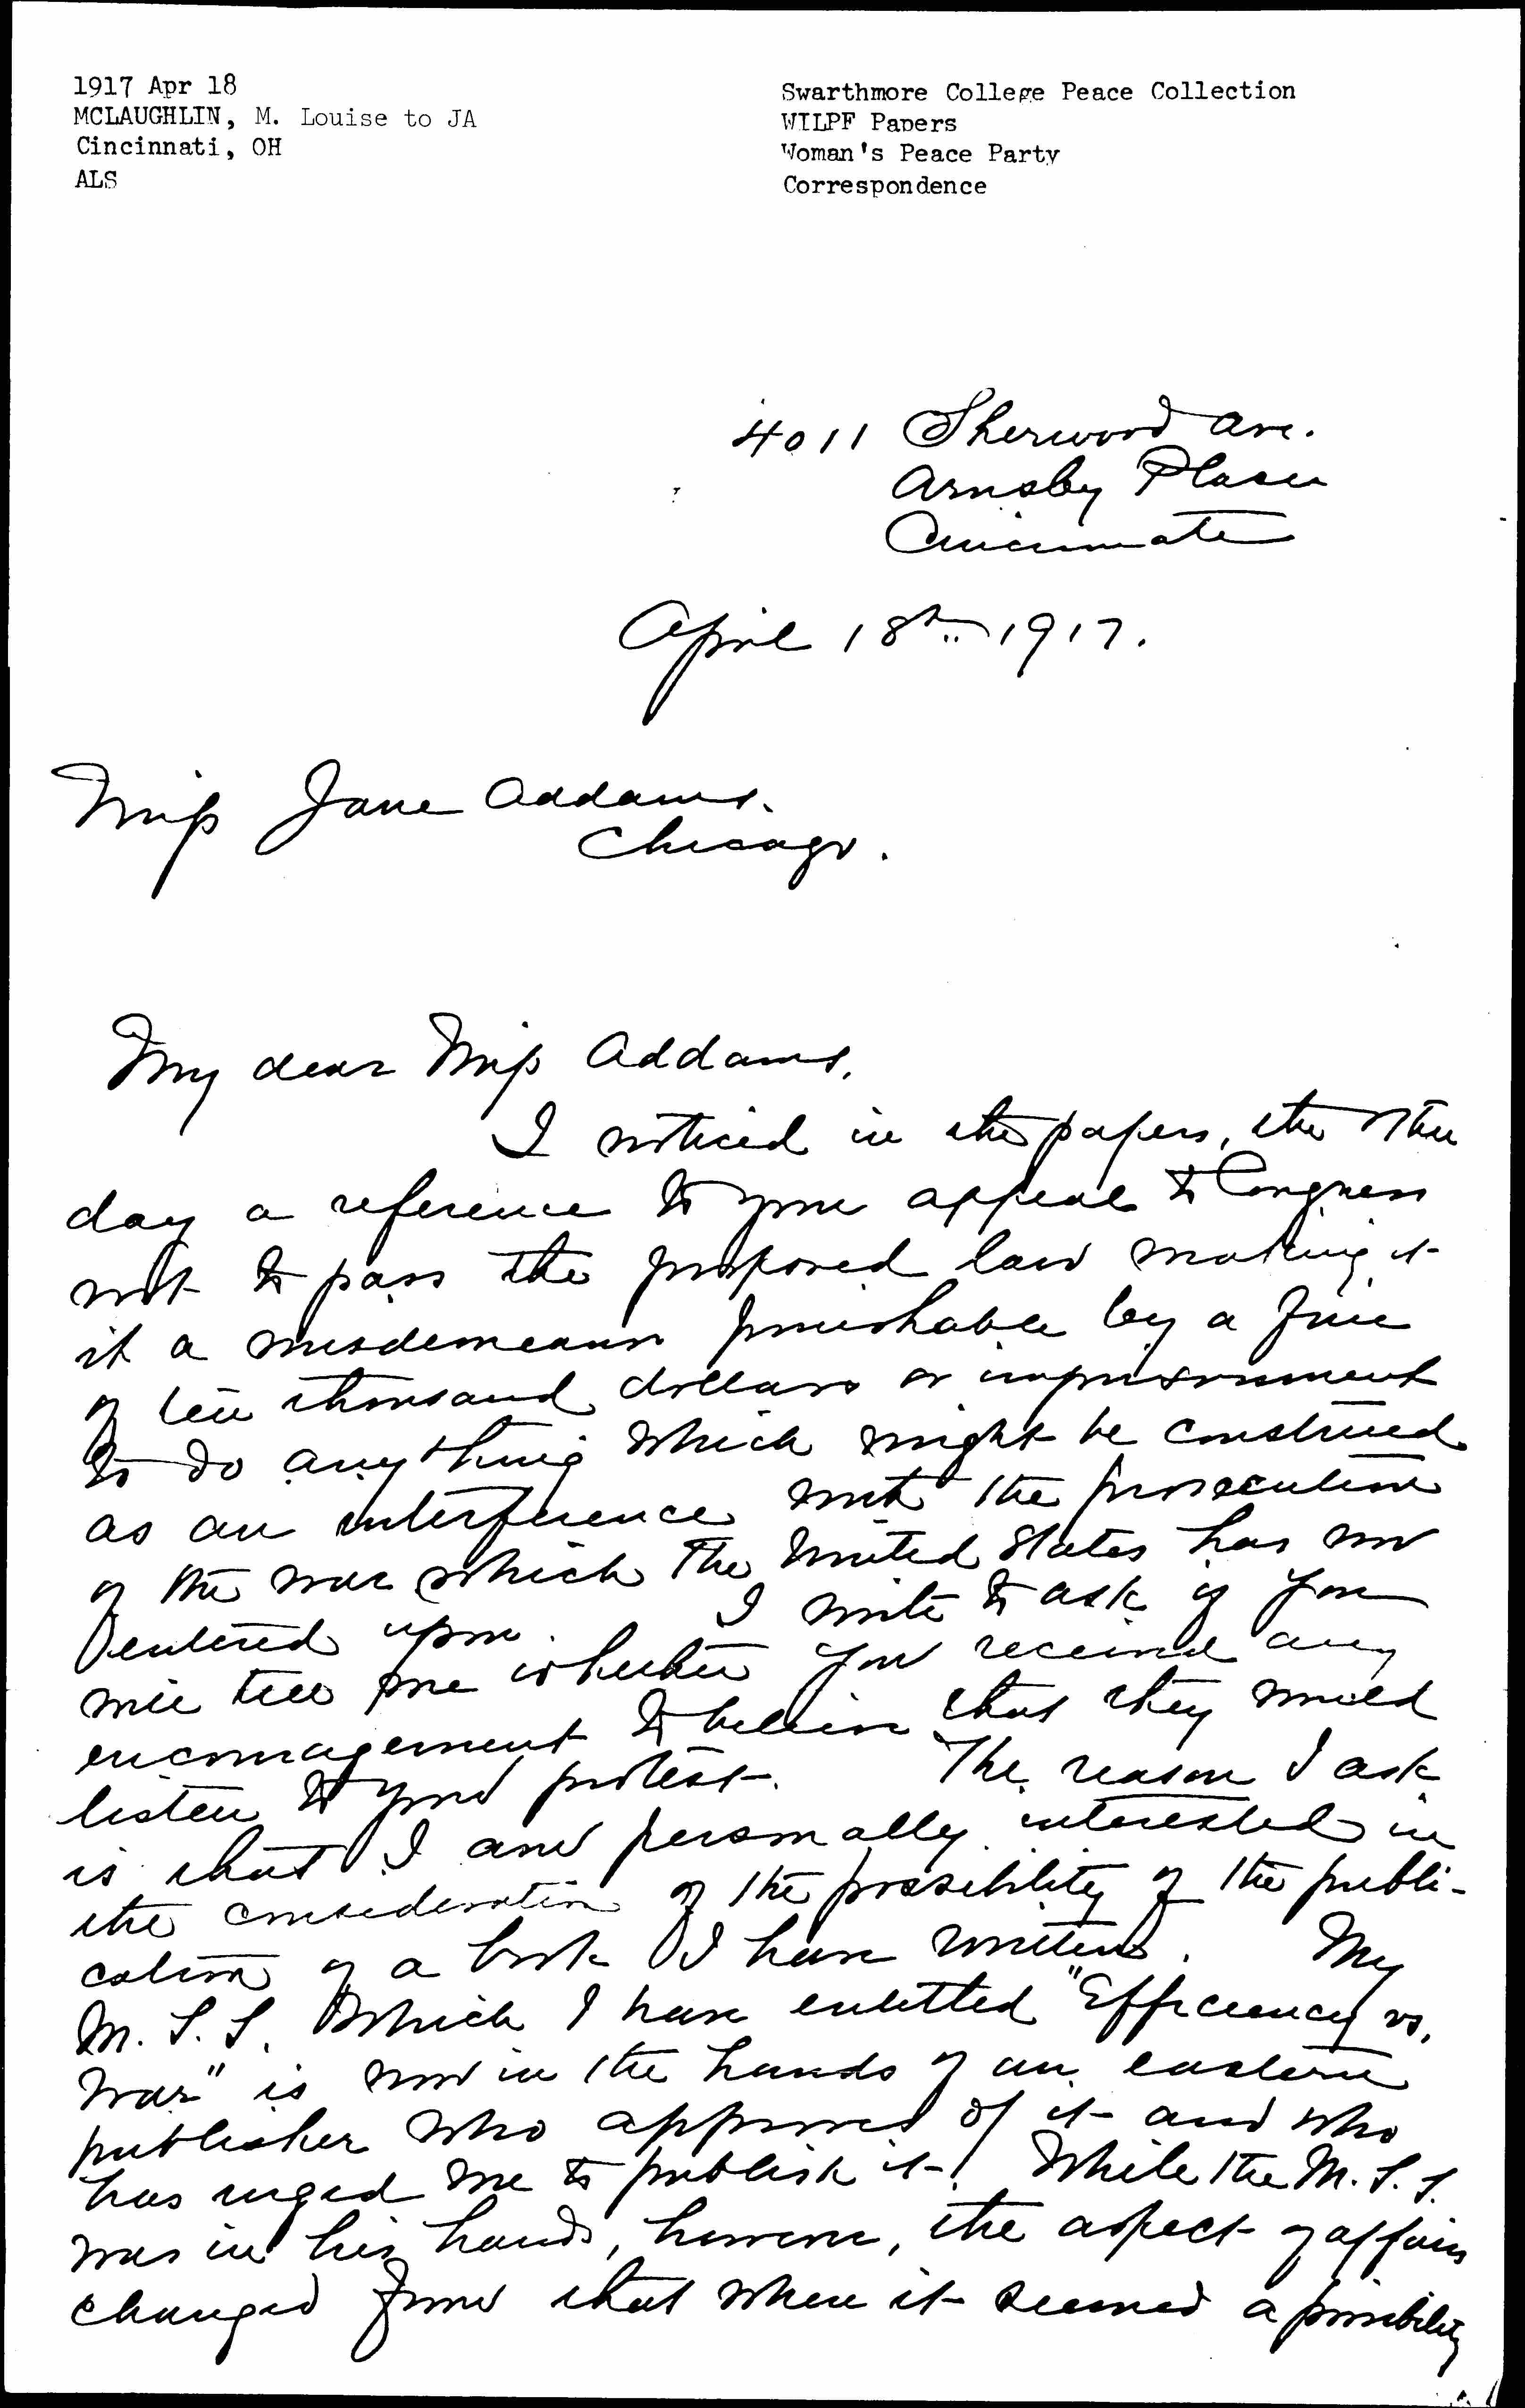 1917 Apr 18
MCLAUGHLIN, M. Louise to JA
Cincinnati, OH
ALS
Swarthmore College Peace Collection
WILPF Papers
Woman's Peace Party
Correspondence
4011 Sherwood Ave.
Arnsby Place
Cincinnati
April 18th 1917.
Miss Jane Addams.
Chicago.
My dear Miss Addams,
I noticed in the papers, the other
day a reference to your appeal to Congress
not to pass the proposed law making it
it a misdemeanor punishable by a fine
of ten thousand dollars or imprisonment
to do anything which might be construed
as an interference with the prosecution
of the war which the United States has now
entered upon. I write to ask if you
will tell me whether you received any
encouragement to believe that they would
listen to your protest. The reason I ask
is that I am personally interested in
the consideration of the possibility of the publi-
cation of a book I have written. My
M.S.S. which I have entitled "Efficiency vs.
War" is now in the hands of an eastern
publisher who approves of it and who
has urged me to publish it. While the M.S.S.
was in his hands, however, the aspect of affairs
changed from that when it seemed a possibility